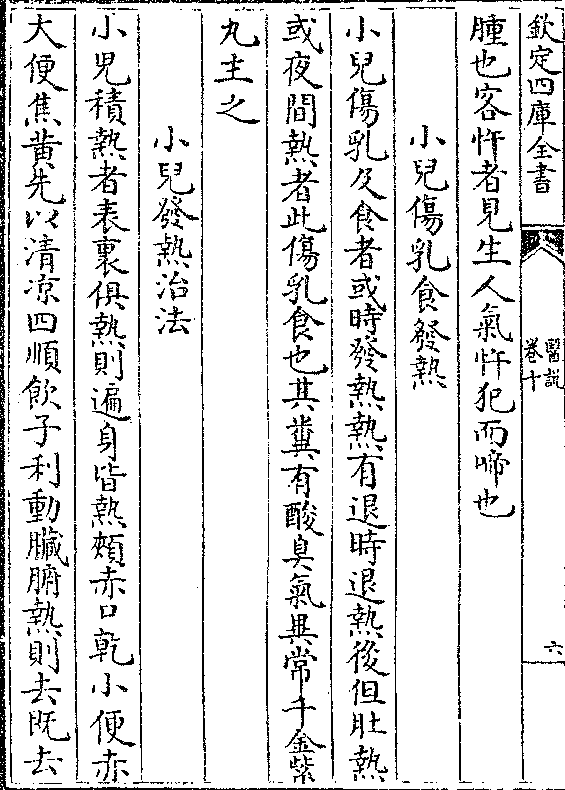 欽定四庫全書
醫説
卷十
六
腫也客忤者見生人氣忤犯而啼也
小兒傷乳食發熱
小兒傷乳及食者或時發熱熱有退時退熱後但肚熱
或夜間熱者此傷乳食也其糞有酸臭氣異常千金紫
丸主之
小兒發熱治法
小兒積熱者表裏俱熱則遍身皆熱頰赤口乾小便赤
大便焦黄先以清凉四順飲子利動臟腑熱則去既去